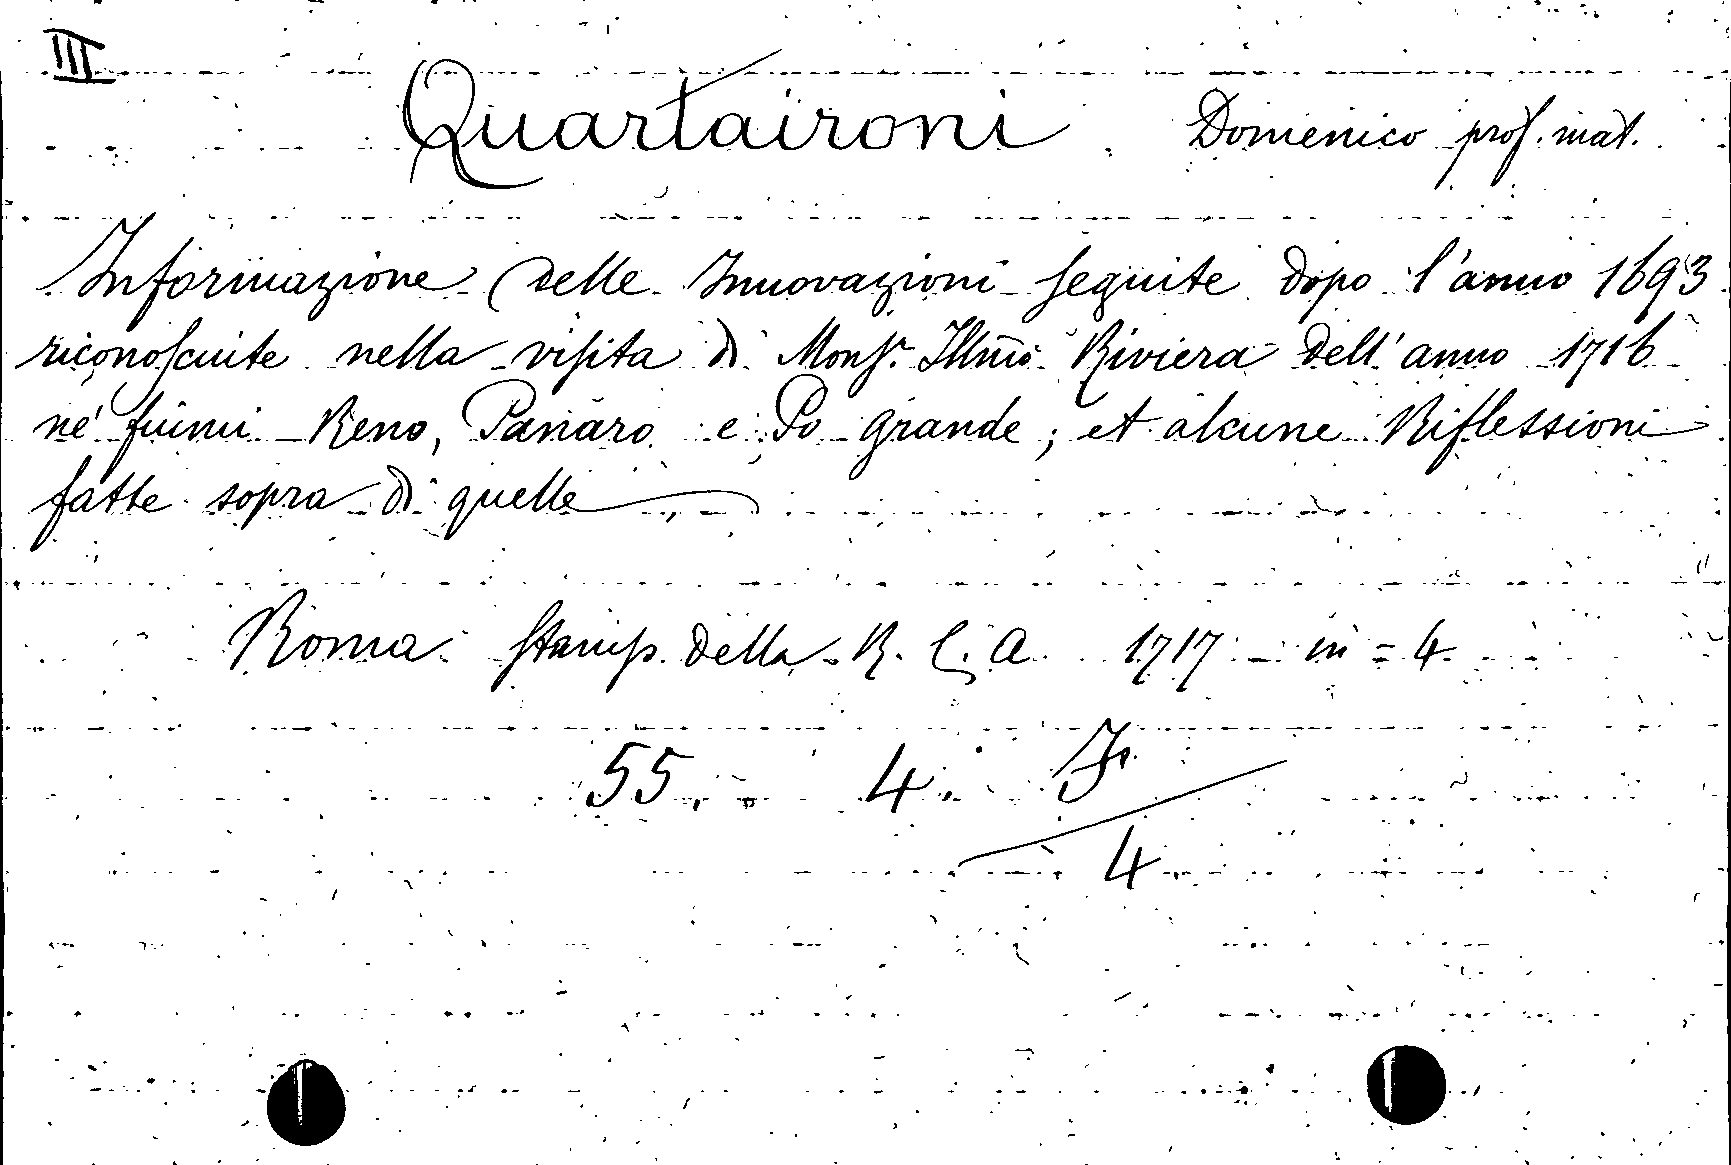 III
Quartaironi Domenico prof. mat.
Informazione delle Innovazioni seguite dopo l'anno 1693
riconosciute nella visita di Monsr. Illmo Riviera dell'anno 1716
ne' fiumi Reno, Panaro e Po grande; et alcune Riflessioni
fatte sopra di quelle
Roma Stamp. della R. C. A. 1717 in = 4
55 4.
4